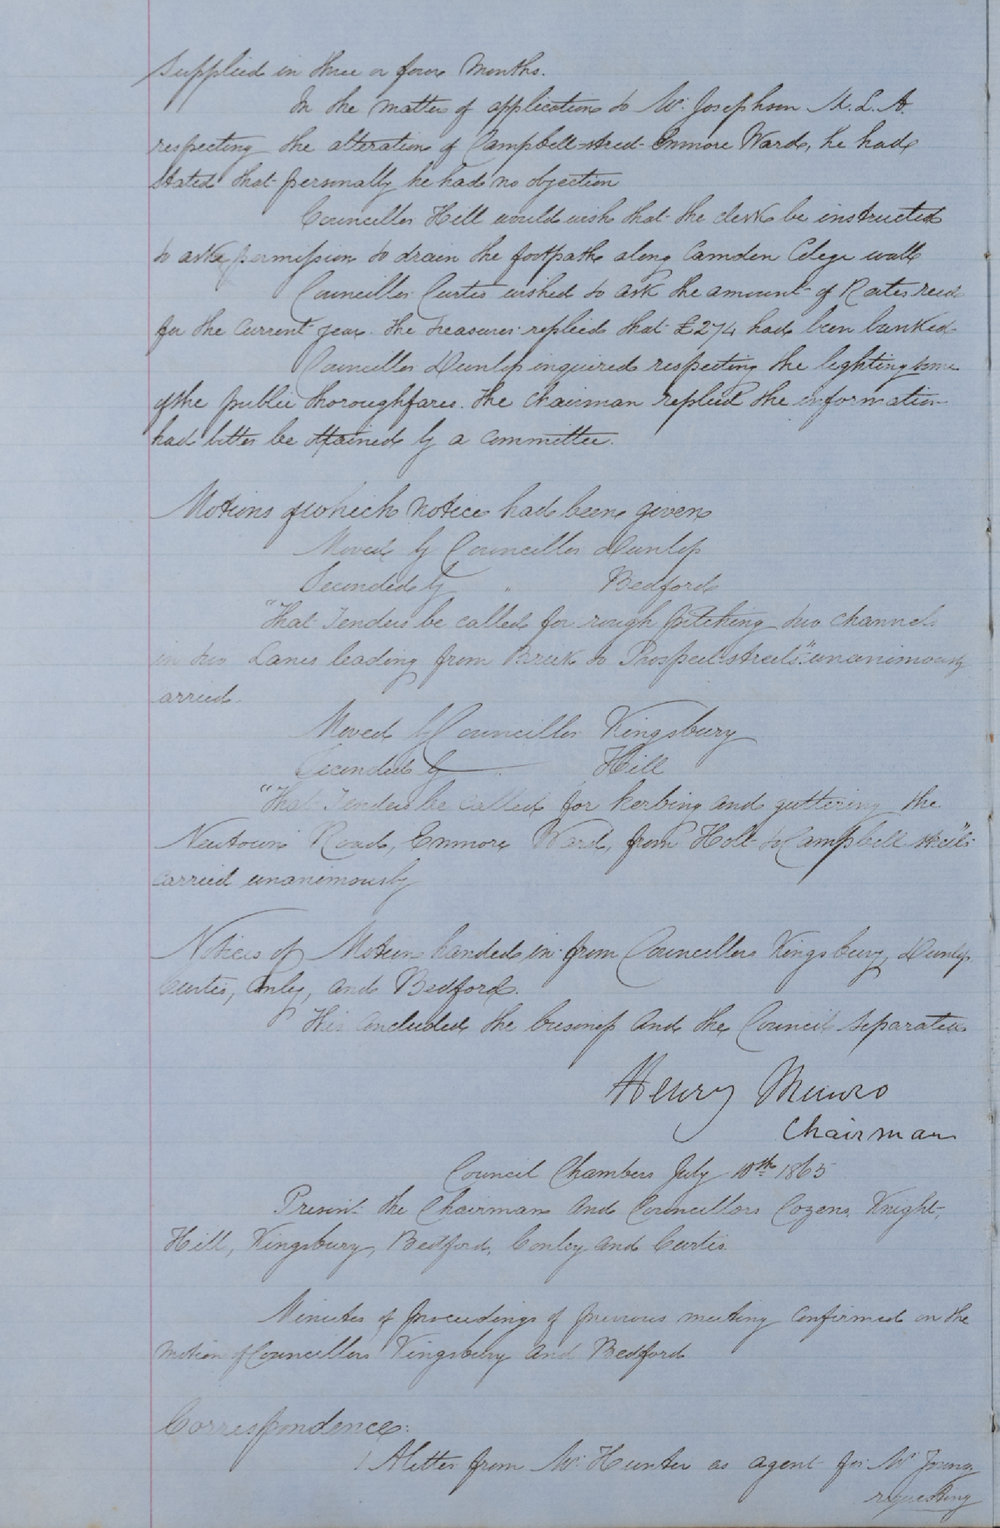 Supplied in three or four Months.
In the matter of application to Mr. Josephson M.L.A.
respecting the alteration of Campbell-street Enmore Ward, he had
stated that personally he had no objection
Councillor Hill would wish that the clerk be instructed
to ask permission to drain the footpath along Camden College wall
Councillor Curtis wished to ask the amount of Rates recd
for the Current year. The Treasurer replied that £274 had been banked
Councillor Dunlop inquired respecting the lighting some
of the public thoroughfares. The Chairman replied the information
had better be obtained by a Committee.
Motions of which Notice had been given
Moved by Councillor Dunlop
Seconded by " Bedford
"That Tenders be called for rough pitching two channels
in two Lanes leading from Brick to Prospect-streets" unanimously
carried.
Moved by Councillor Kingsbury
Seconded by Hill
"That Tenders be called for kerbing and guttering the
Newtown Road, Enmore Ward, from Holt to Campbell streets"
carried unanimously
Notices of Motion handed in from Councillors Kingsbury, Dunlop
Curtis, Conley, and Bedford.
This concluded the business and the Council separated
Henry Munro
Chairman
Council Chambers July 10th 1865
Present the Chairman and Councillors Cozens, Knight,
Hill, Kingsbury, Bedford, Conley and Curtis.
Minutes of proceedings of previous meeting confirmed on the
motion of Councillors Kingsbury and Bedford
Correspondence:
1 A letter from Mr. Hunter as agent for Mr. Young
requesting